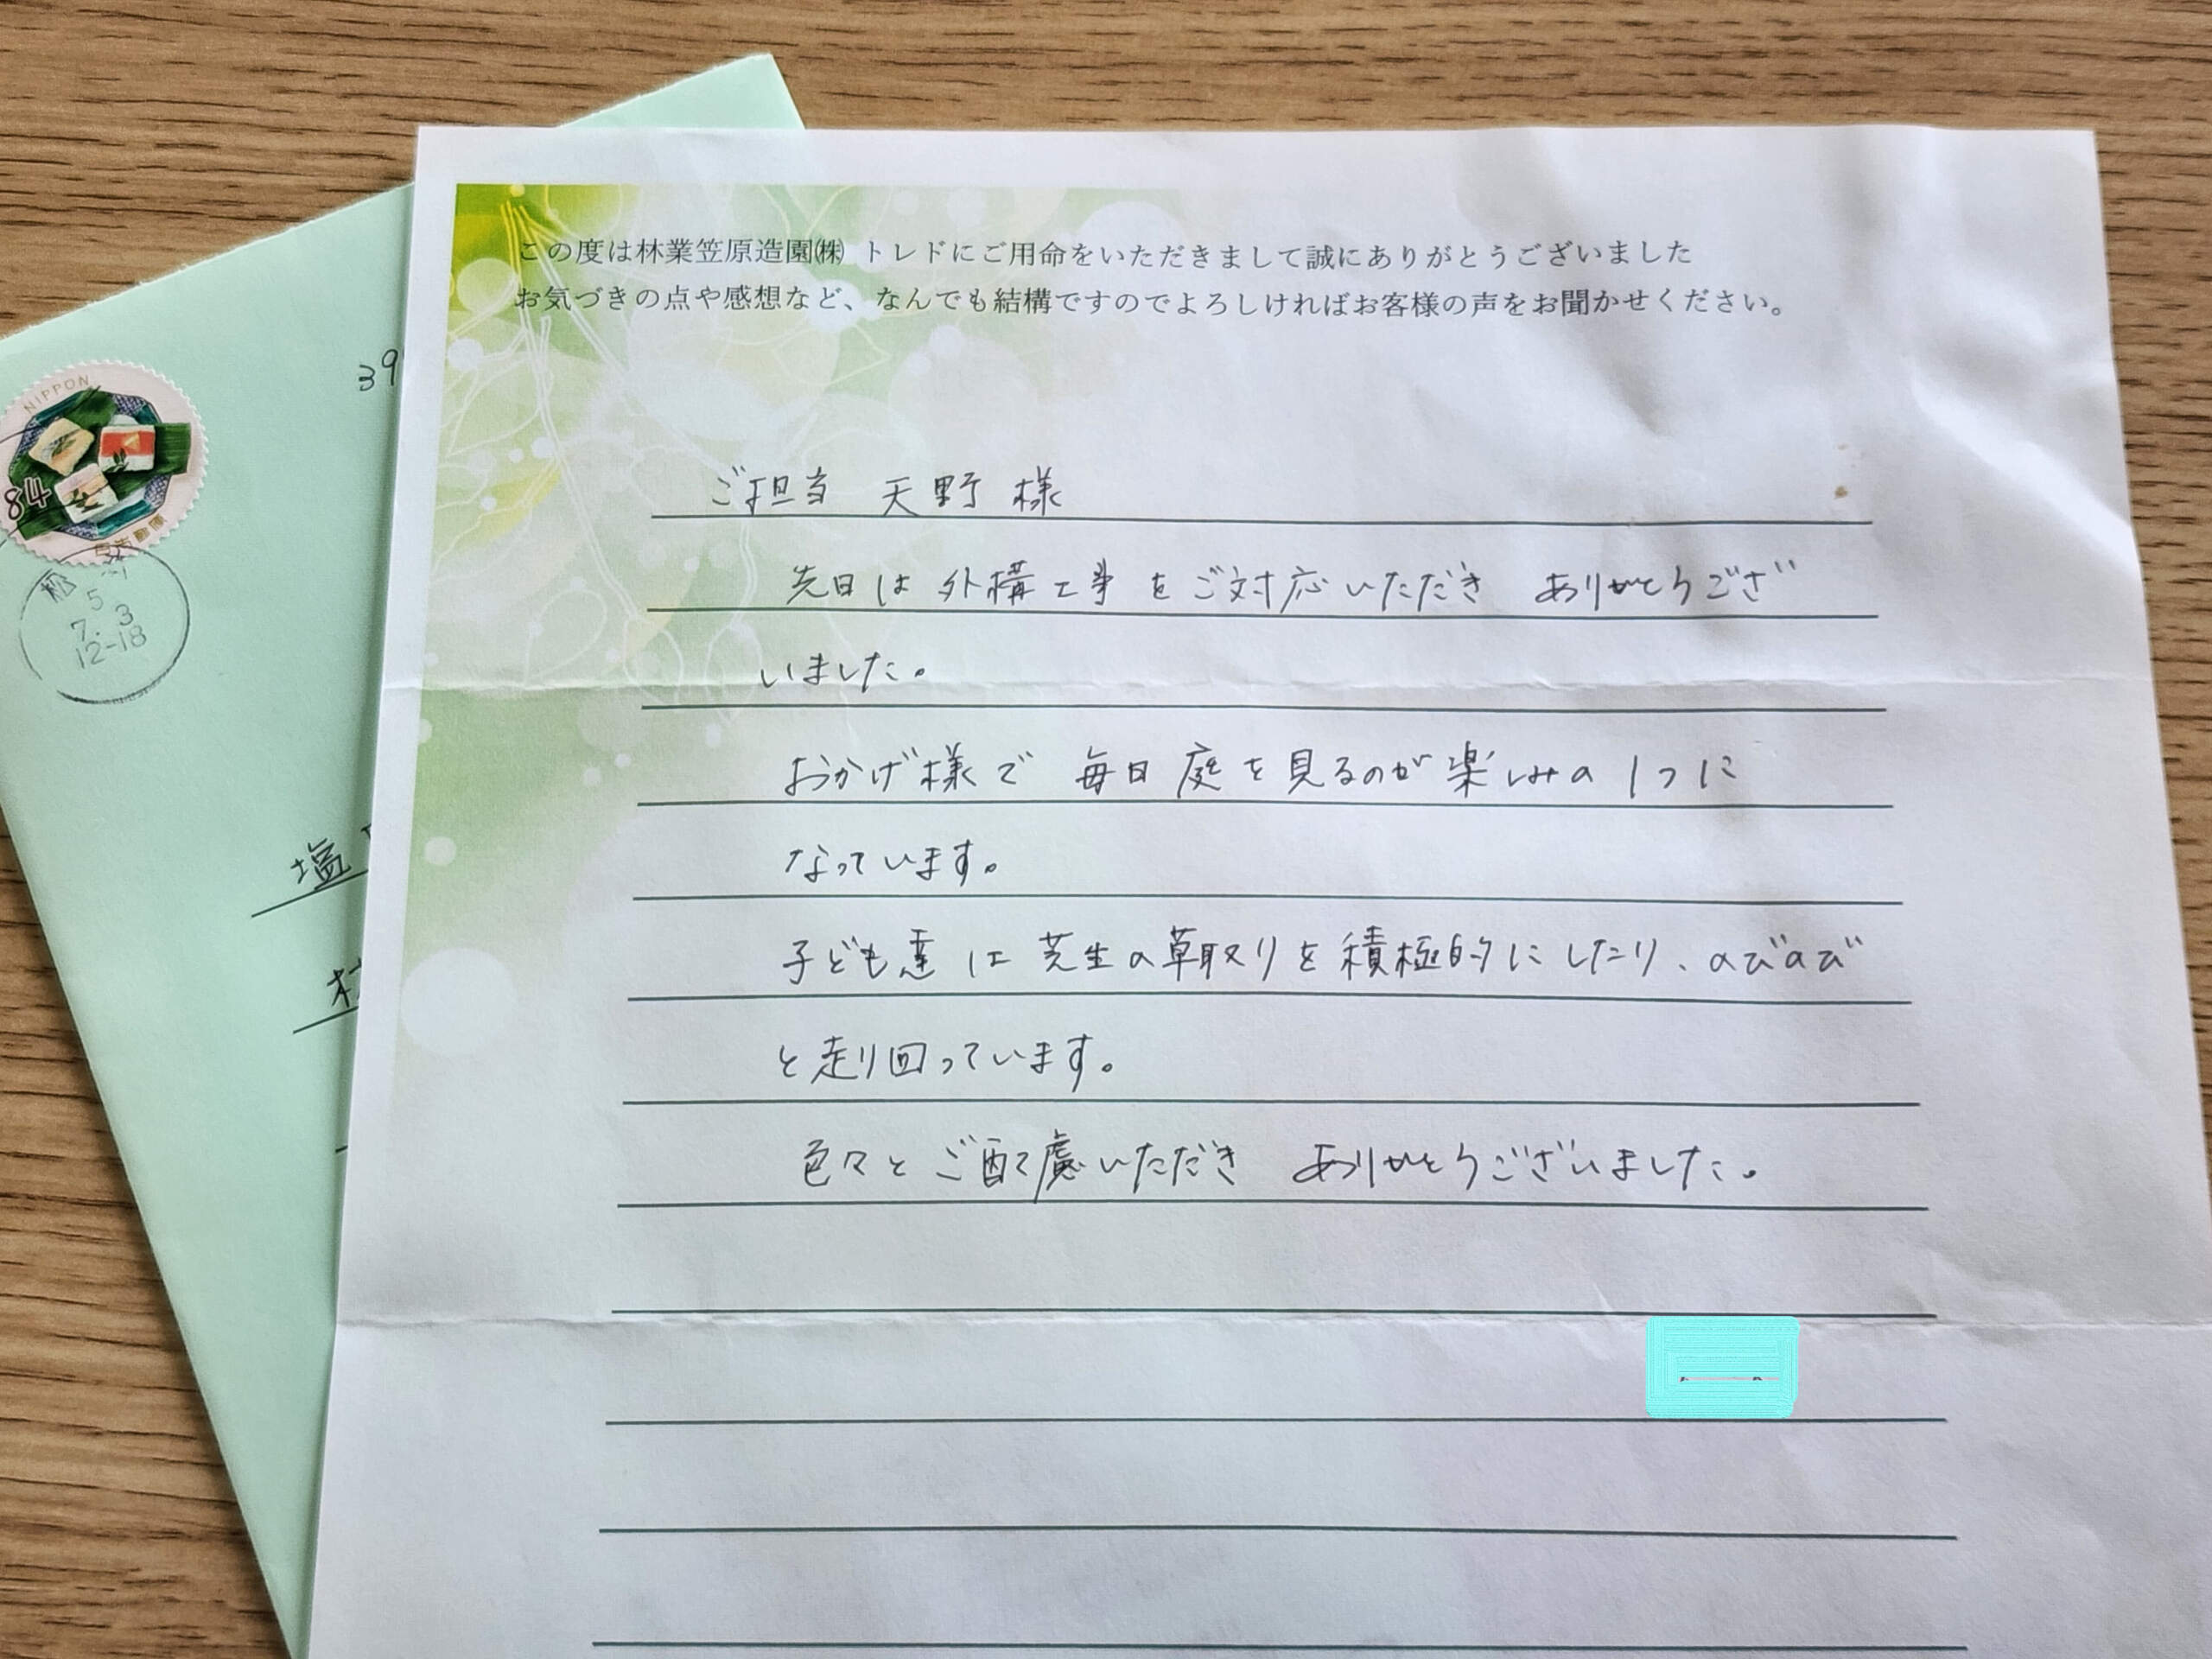 この度は林業笠原造園㈱ トレドにご用命をいただきまして誠にありがとうございました
お気づきの点や感想など、なんでも結構ですのでよろしければお客様の声をお聞かせください。
ご担当 天野 様
先日は 外構工事 をご対応いただき ありがとうござ
いました。
おかげ様で 毎日 庭を見るのが楽しみの1つに
なっています。
子ども達は 芝生の草取りを積極的にしたり、のびのび
と走り回っています。
色々と ご配慮いただき ありがとうございました。
NIPPON
84
日本郵便
5
7. 3
12-18
39
塩